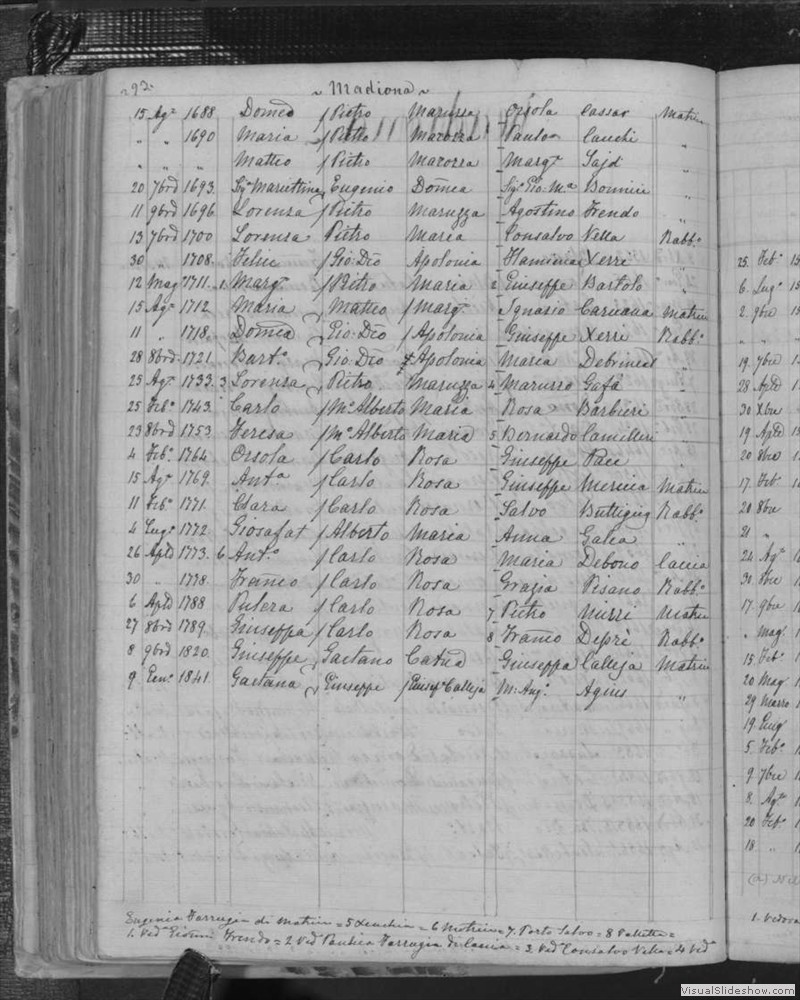 292. ~ Madiona ~
15 Ag.º 1688. Domca / Pietro Maruzza Orsola Cassar Matrice
" " 1690 Maria / Pietro Marozza Paulo Cauchi "
" " " Matteo / Pietro Marozza Marg.ª Sajd "
20 7bre 1693. Eugenio Domca Bonnici "
11 9bre 1696. Lorenza / Pietro Maruzza Agostino Frendo "
13 7bre 1700 Lorenza Pietro Maria Consalvo Vella Rabb.º
30 " 1708. Felice / Gio: Dio Apolonia Flaminia Xerri "
12 Mag.º 1711. 1. Marg.ª / Pietro Maria 2 Giuseppe Bartolo "
15 Ag.º 1712 Maria Matteo / Marg.ª Ignasio Caruana Matrice
11 " 1718. Domca Gio: Dio / Apolonia Giuseppe Xerri Rabb.º
28 8bre 1721. Bart.º Gio: Dio Apolonia Maria Debrincat "
25 Ag.º 1733. 3 Lorenza Pietro Maruzza 4 Gafà "
25 Feb.º 1743. Carlo / M.º Alberto Maria Rosa Barbieri "
23 8bre 1753. Teresa / M.º Alberto Maria 5 Bernardo Camilleri "
4 Feb.º 1764 Orsola / Carlo Rosa Giuseppe Pace "
15 Ag.º 1769. Ant.ª / Carlo Rosa Giuseppe Matrice
11 Feb.º 1771. Clara / Carlo Rosa Salvo Buttigieg Rabb.º
4 Lug.º 1772 Giosafat / Alberto Maria Anna Galea "
26 Aple 1773. 6 Ant.º / Carlo Rosa Maria Debono Caccia
30 " 1778. Franco / Carlo Rosa Grazia Pisano Rabb.º
6 Aple 1788 Pulera / Carlo Rosa 7 Pietro Mizzi Matrice
27 8bre 1789. Giuseppa / Carlo Rosa 8 Franco Depiè Rabb.º
8 9bre 1820. Giuseppe Gaetano Catna Giuseppa Calleja Matrice
9 Gen.º 1841. Gaetana Giuseppe / Calleja M: Ang.ª Agius "
Eugenia Farrugia di Matrice = 5 Xeuchia = 6 Matrice = 7. Porto Salvo = 8 Valletta =
1. Ved.ª Frendo = 2 Ved. Farrugia = 3. Ved. Consalvo Vella = 4 Ved.ª
25. Feb.º 15
6. Lug.º 15
2. 9bre 15
" " "
19. 7bre
28. Aple
30 Xbre
19. Aple
20 8bre
17. Feb.º
20. 8bre
21 "
24. Ag.º
30.
17. 9bre
" Mag.º
15. Feb.º
20 Mag
29 Marzo
19.
5. Feb.º
9. 7bre
8. Ag.º
20 Feb.º
18 "
1. Vedova
VisualSlideshow.com